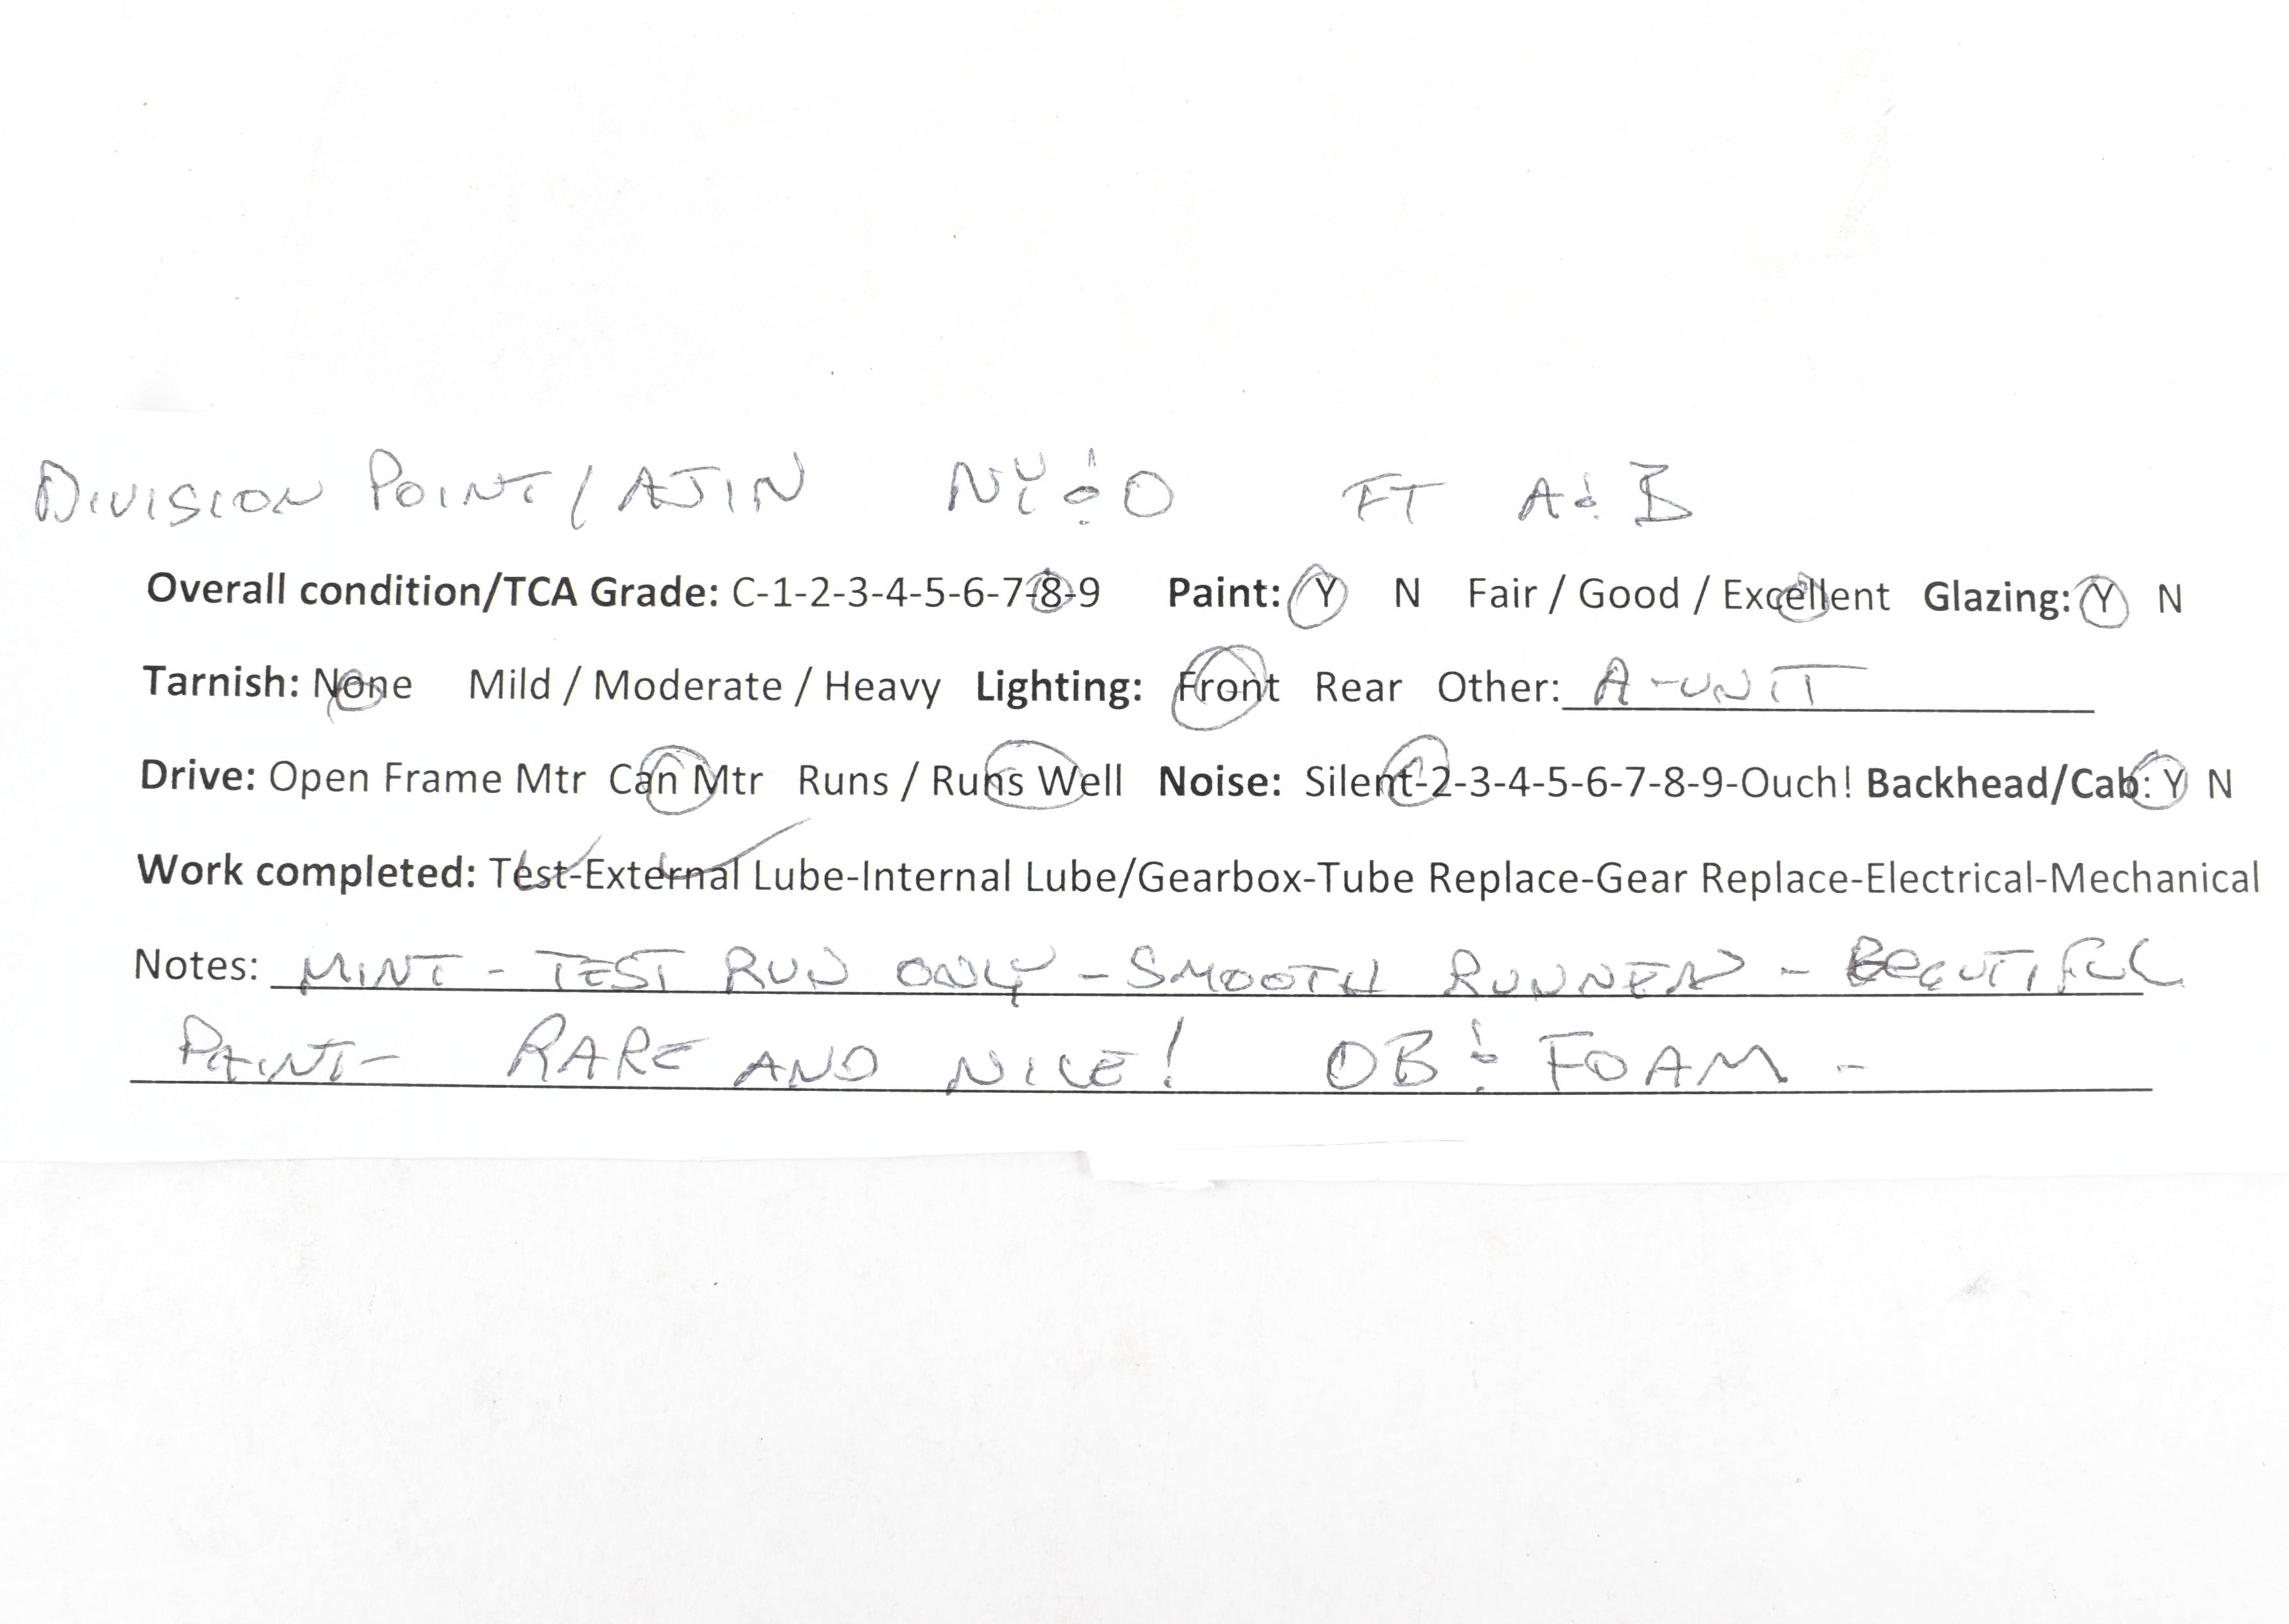 DIVISION POINT / AJIN NY&O FT A & B
Overall condition/TCA Grade: C-1-2-3-4-5-6-7-8-9 Paint: Y N Fair / Good / Excellent Glazing: Y N
Tarnish: None Mild / Moderate / Heavy Lighting: Front Rear Other: A-UNIT
Drive: Open Frame Mtr Can Mtr Runs / Runs Well Noise: Silent-2-3-4-5-6-7-8-9-Ouch! Backhead/Cab: Y N
Work completed: Test-External Lube-Internal Lube/Gearbox-Tube Replace-Gear Replace-Electrical-Mechanical
Notes: MINT - TEST RUN ONLY - SMOOTH RUNNER - BEAUTIFUL
PAINT - RARE AND NICE! OB & FOAM -